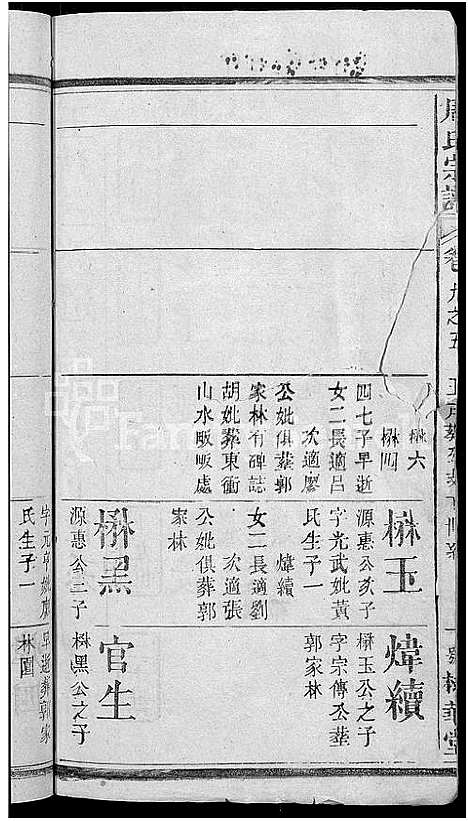 周氏宗譜
卷九之五
楙六
楙四
四七子早逝
女二長適呂
次適廖
公妣俱葬郭
家林有碑誌
胡妣葬東衝
山水畈畈處
楙玉
源惠公亥子
字光武妣黃
氏生子一
煒續
女二長適劉
次適張
公妣俱葬郭
家林
楙黑
源惠公二子
字元卓妣廖
氏生子一
煒續
楙玉公之子
字宗傳公葬
郭家林
官生
楙黑公之子
早逝葬郭家
林園